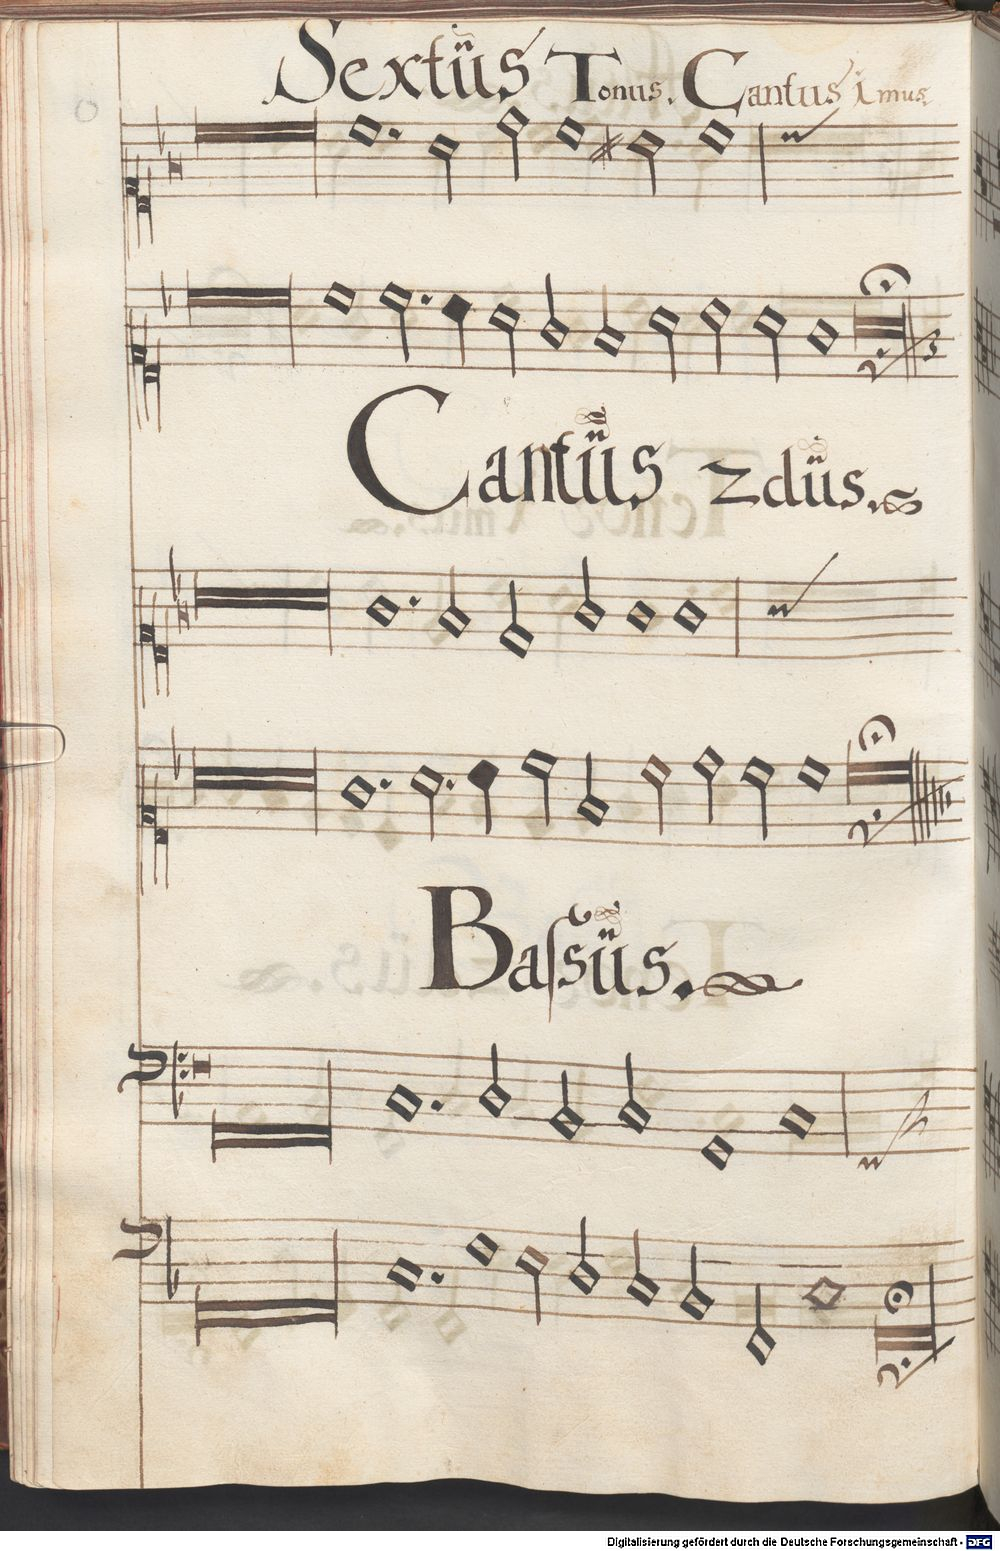 Sextüs Tonus. Cantus 1mus
Cantüs 2düs.
Baſsüs.
Digitalisierung gefördert durch die Deutsche Forschungsgemeinschaft - DFG